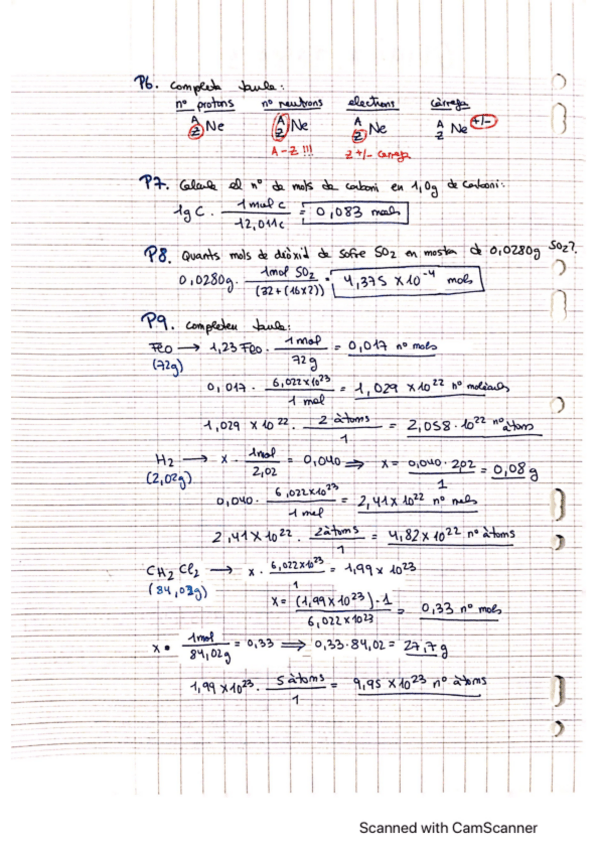 P6. Completa taula:
nº protons nº neutrons electrons càrrega
A Z Ne A Z Ne A Z Ne A Z Ne +/-
A-Z!!! Z +/- càrrega
P7. Calcula el nº de mols de carboni en 1,0g de carboni:
1g C · 1 mol C / 12,011c = 0,083 mols
P8. Quants mols de diòxid de sofre SO2 en mostra de 0,0280g SO2?
0,0280g · 1mol SO2 / (32+(16x2)) = 4,375 x 10^-4 mols
P9. Completeu taula:
FeO → 1,23 FeO · 1 mol / 72 g = 0,017 nº mols
(72g)
0,017 · 6,022x10^23 / 1 mol = 1,029 x 10^22 nº molèculs
1,029 x 10^22 · 2 àtoms / 1 = 2,058 · 10^22 nº àtoms
H2 → x · 1mol / 2,02 = 0,040 ⇒ x = 0,040 · 202 / 1 = 0,08 g
(2,02g)
0,040 · 6,022x10^23 / 1 mol = 2,41 x 10^22 nº mols
2,41 x 10^22 · 2 àtoms / 1 = 4,82 x 10^22 nº àtoms
CH2Cl2 → x · 6,022x10^23 / 1 = 1,99 x 10^23
(84,02g)
x = (1,99 x 10^23) · 1 / 6,022x10^23 = 0,33 nº mols
x · 1mol / 84,02g = 0,33 ⇒ 0,33 · 84,02 = 27,7 g
1,99 x 10^23 · 5 àtoms / 1 = 9,95 x 10^23 nº àtoms
Scanned with CamScanner